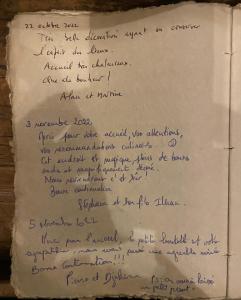 22 octobre 2022
Très belle décoration ayant su conserver
l'esprit du lieux.
Accueil très chaleureux.
Que du bonheur !
Alain et Martine
3 novembre 2022,
Merci pour votre accueil, vos attentions,
vos recommandations culinaires...
Cet endroit est magique, plein de bonnes
ondes et magnifiquement décoré.
Nous reviendrons c'est sûr !
Bonne continuation
Stéphane et son fils
5 novembre
Merci pour l'accueil, la petite bouteille et votre
sympathie, nous avons passé une agréable soirée
Bonne Continuation !!!
Pierre et
PS : on vous a laissé
un petit